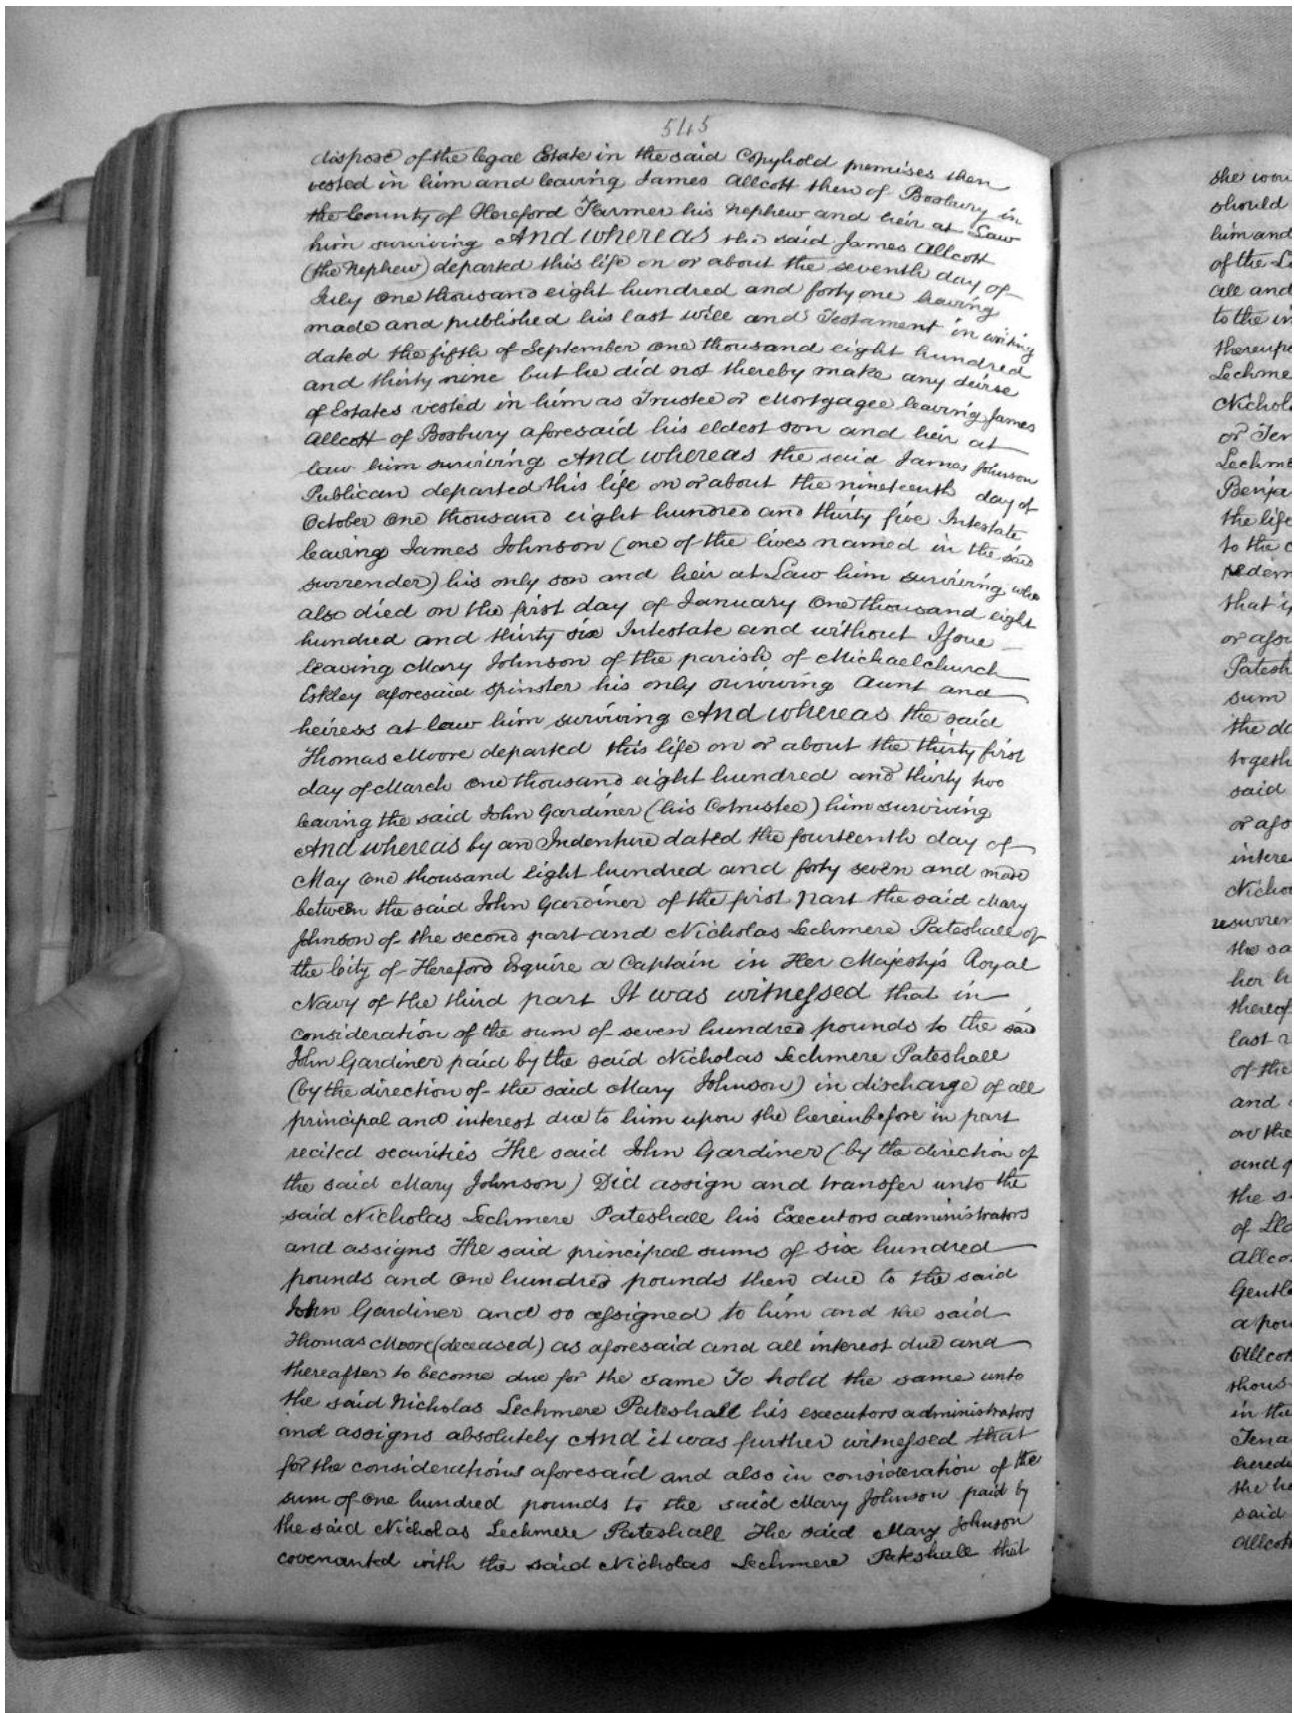 545
dispose of the legal Estate in the said Copyhold premises then
vested in him and leaving James Allcott then of Bosbury in
the County of Hereford Farmer his Nephew and heir at Law
him surviving And whereas the said James Allcott
(the Nephew) departed this life on or about the seventh day of
July One thousand eight hundred and forty one leaving
made and published his last will and Testament in writing
dated the fifth of September One thousand eight hundred
and thirty nine but he did not thereby make any devise
of Estates vested in him as Trustee or Mortgagee leaving James
Allcott of Bosbury aforesaid his eldest son and heir at
law him surviving And whereas the said James Johnson
Publican departed this life on or about the nineteenth day of
October One thousand eight hundred and thirty five Intestate
leaving James Johnson (one of the lives named in the said
surrender) his only son and heir at Law him surviving who
also died on the first day of January One thousand eight
hundred and thirty six Intestate and without Issue
leaving Mary Johnson of the parish of Michaelchurch
Eskley aforesaid Spinster his only surviving Aunt and
heiress at law him surviving And whereas the said
Thomas Moore departed this life on or about the thirty first
day of March One thousand eight hundred and thirty two
leaving the said John Gardiner (his Cotrustee) him surviving
And whereas by an Indenture dated the fourteenth day of
May One thousand eight hundred and forty seven and made
between the said John Gardiner of the first part the said Mary
Johnson of the second part and Nicholas Lechmere Pateshall of
the City of Hereford Esquire a Captain in Her Majesty's Royal
Navy of the third part It was witnessed that in
consideration of the sum of seven hundred pounds to the said
John Gardiner paid by the said Nicholas Lechmere Pateshall
(by the direction of the said Mary Johnson) in discharge of all
principal and interest due to him upon the hereinbefore in part
recited securities The said John Gardiner (by the direction of
the said Mary Johnson) Did assign and transfer unto the
said Nicholas Lechmere Pateshall his Executors administrators
and assigns The said principal sums of six hundred
pounds and One hundred pounds then due to the said
John Gardiner and so assigned to him and the said
Thomas Moore (deceased) as aforesaid and all interest due and
thereafter to become due for the same To hold the same unto
the said Nicholas Lechmere Pateshall his executors administrators
and assigns absolutely And it was further witnessed that
for the considerations aforesaid and also in consideration of the
sum of One hundred pounds to the said Mary Johnson paid by
the said Nicholas Lechmere Pateshall The said Mary Johnson
covenanted with the said Nicholas Lechmere Pateshall that
she
should
him and
of the
all and
to the
Nichol
or
the life
to the
that
or
sum
the
said
or
the sa
her
thereof
last
of the
and
on the
and
the
of
a
in the
the
said
Allcott